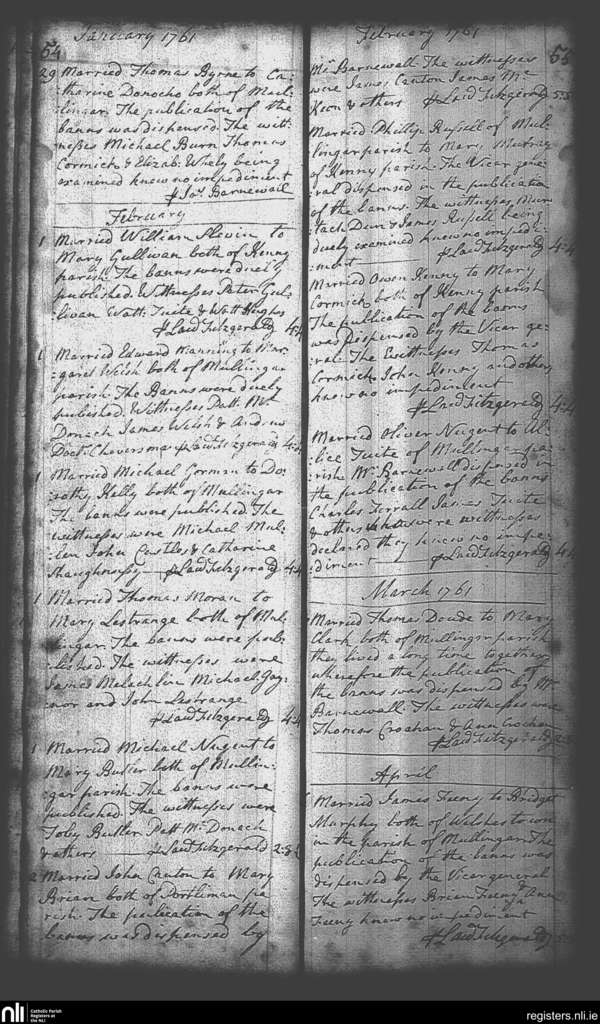 January 1761
54
29 Married Thomas Byrne to Ca:
:tharine Donocho both of Mul:
:lingar. The publication of the
banns was dispensed. The witt:
:nesses Michael Burn Thomas
Cormick & Elizab: being
examined knew no impediment
Jas. Barnewall
February
1 Married William Slevin to
Mary Gullivan both of Kenny
parish. The banns were duely
published. Wittnesses Peter Gul:
:livan Watt: Tuite & Watt Hughes
Laud Fitzgerald 4:4
1 Married Edward Manning to Mar:
:garet Welsh both of Mullingar
parish. The Banns were duely
published. Wittnesses Patt: Mc
Donach James Welsh & Andrew
Laud Fitzgerald 4:4
1 Married Michael Gorman to Do:
:rothy Kelly both of Mullingar
The banns were published. The
wittnesses were Michael Mul:
:len John Castles & Catharine
Shaughnessy Laud Fitzgerald 4:4
1 Married Thomas Moran to
Mary Lestrange both of Mul:
:lingar. The banns were pub:
:lished. The wittnesses were
James Melachlin Michael Gay:
:nor and John Lestrange
Laud Fitzgerald 4:4
1 Married Michael Nugent to
Mary Butler both of Mullin:
:gar parish. The banns were
published. The wittnesses were
Toby Butler Patt Mc Donach
& others Laud Fitzgerald 2:8½
2 Married John to Mary
Brian both of Portliman pa:
:rish. The publication of the
banns was dispensed by
February 1761
55
Mr Barnewall. The wittnesses
were James Canton James Mc
Keon & others Laud Fitzgerald
Married Phillip Russell of Mul:
:lingar parish to Mary Murray
of Kenny parish. The Vicar gene:
:ral dispensed in the publication
of the banns. The wittnesses Mur:
:tach & James Russell being
duely examined know no impedi:
:ment Laud Fitzgerald 4:4
Married Owen Kenny to Mary
Cormick both of Kenny parish
The publication of the banns
was dispensed by the Vicar ge:
:neral. The Wittnesses Thomas
Cormick John Kenny and others
know no impediment
Laud Fitzgerald 4:4
Married Oliver Nugent to Al:
:lice Tuite of Mullingar pa:
:rish. Mr Barnewall dispensed in
the publication of the banns
Charles Terrall James Tuite
& others who were wittnesses
declared they knew no impe:
:diment Laud Fitzgerald
March 1761
Married Thomas Doude to Mary
Clark both of Mullingar parish
they lived a long time together
wherefore the publication of
the banns was dispensed by Mr
Barnewall. The wittnesses were
Thomas Croghan & Ann Croghan
Laud Fitzgerald
April
Married James Feeny to Bridget
Murphy both of Walshestown
in the parish of Mullingar. The
publication of the banns was
dispensed by the Vicar general
The wittnesses Brien Feeny & Ann
Feeny know no impediment
Laud Fitzgerald
nli
Catholic Parish
Registers at
the NLI
registers.nli.ie